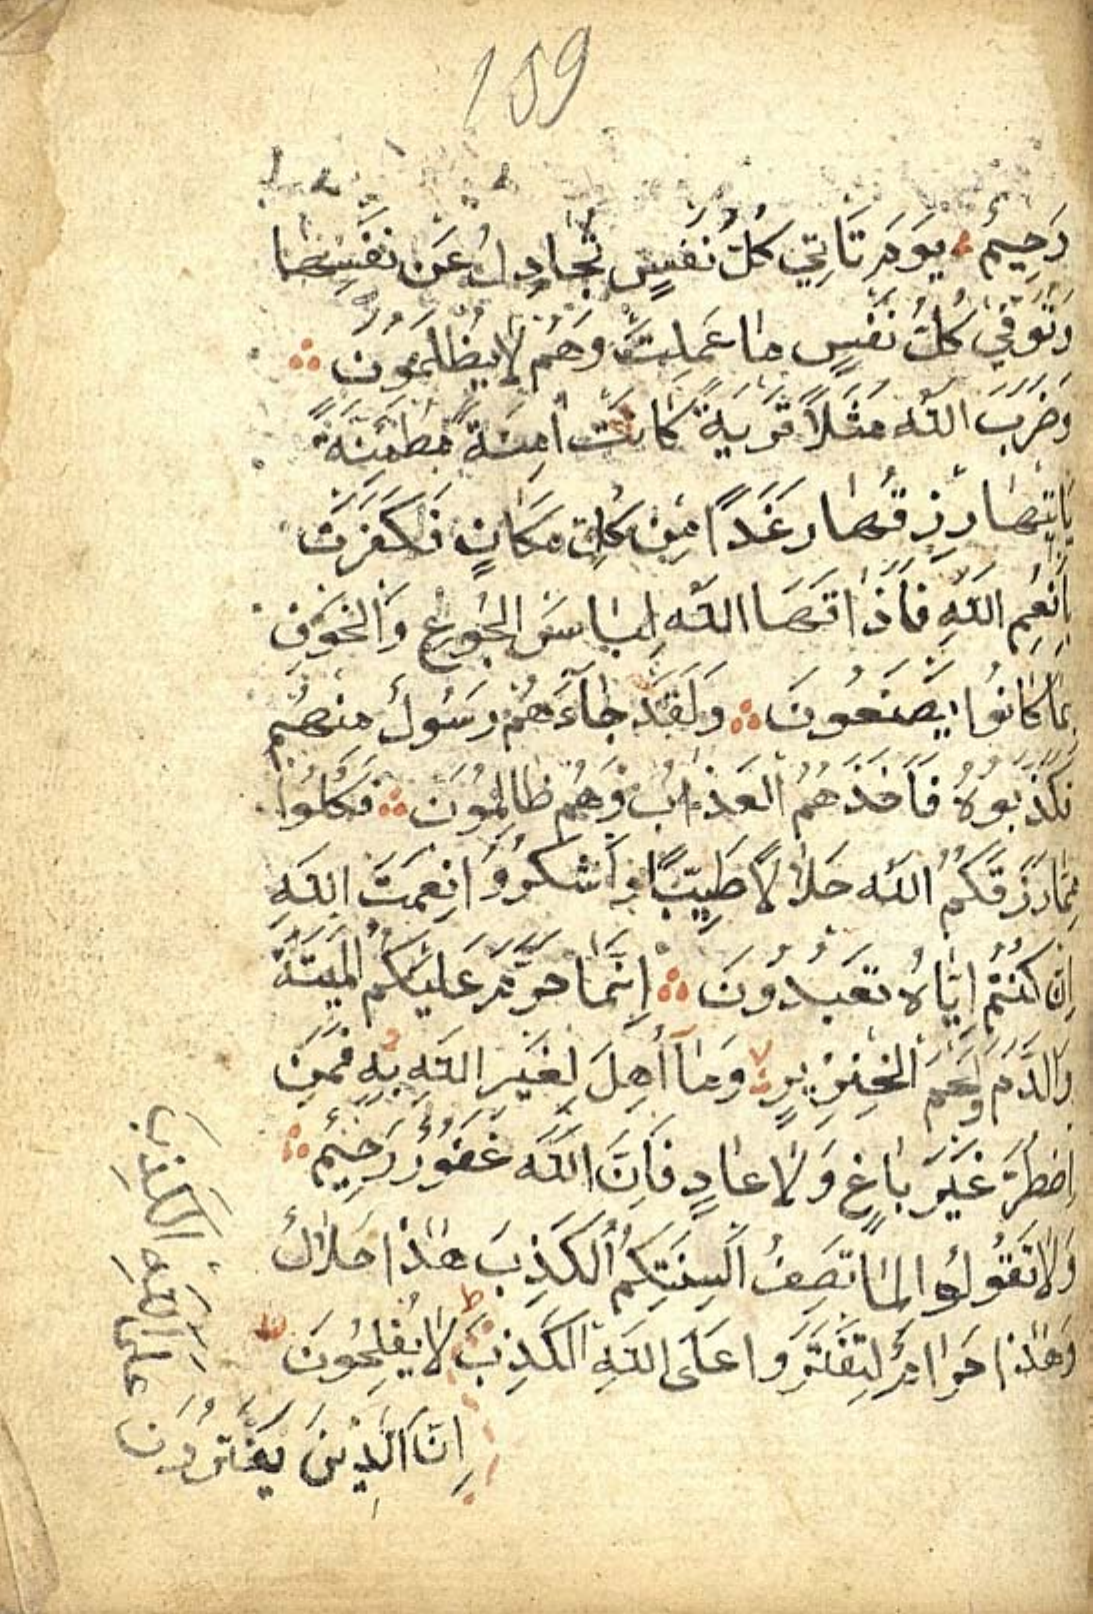 159
رَحِيمٌ يَوْمَ تَاْتِي كُلُّ نَفْسٍ تُجَادِلُ عَنْ نَفْسِهَا
وَتُوَفّٰى كُلُّ نَفْسٍ مٰا عَمِلَتْ وَهُمْ لٰا يُظْلَمُونَ
وَضَرَبَ اللّٰه مَثَلًا قَرْيَةً كَانَتْ اٰمِنَةً مُطْمَئِنَّةً
يَاْتِيْهٰا رِزْقُهٰا رَغَدًا مِنْ كُلِّ مَكَانٍ فَكَفَرَتْ
بِاَنْعُمِ اللّٰهِ فَاَذَاقَهَا اللّٰه لِبٰاسَ الْجُوْعِ وَالْخَوْفِ
بِمٰا كٰانُوا يَصْنَعُونَ وَلَقَدْ جٰآءَهُمْ رَسُولٌ مِنْهُمْ
فَكَذَّبُوهُ فَاَخَذَهُمُ الْعَذٰابُ وَهُمْ ظٰالِمُوْنَ فَكُلُوا
مِمّٰا رَزَقَكُمُ اللّٰه حَلٰالًا طَيِّبًا وَاشْكُرُوْا نِعْمَتَ اللّٰهِ
اِنْ كُنْتُمْ اِيّٰاهُ تَعْبُدُوْنَ اِنَّمٰا حَرَّمَ عَلَيْكُمُ الْمَيْتَةَ
وَالدَّمَ وَلَحْمَ الْخِنْزِيْرِ وَمٰآ اُهِلَّ لِغَيْرِ اللّٰهِ بِهِ فَمَنِ
اضْطُرَّ غَيْرَ بٰاغٍ وَلٰا عٰادٍ فَاِنَّ اللّٰهَ غَفُوْرٌ رَحِيْمٌ
وَلٰا تَقُولُوا لِمٰا تَصِفُ اَلْسِنَتُكُمُ الْكَذِبَ هٰذٰا حَلٰالٌ
وَهٰذٰا حَرٰامٌ لِتَفْتَرُوا عَلَى اللّٰهِ الْكَذِبَ لٰا يُفْلِحُونَ
اِنَّ الَّذِيْنَ يَفْتَرُوْنَ
عَلَى اللّٰهِ الْكَذِبَ